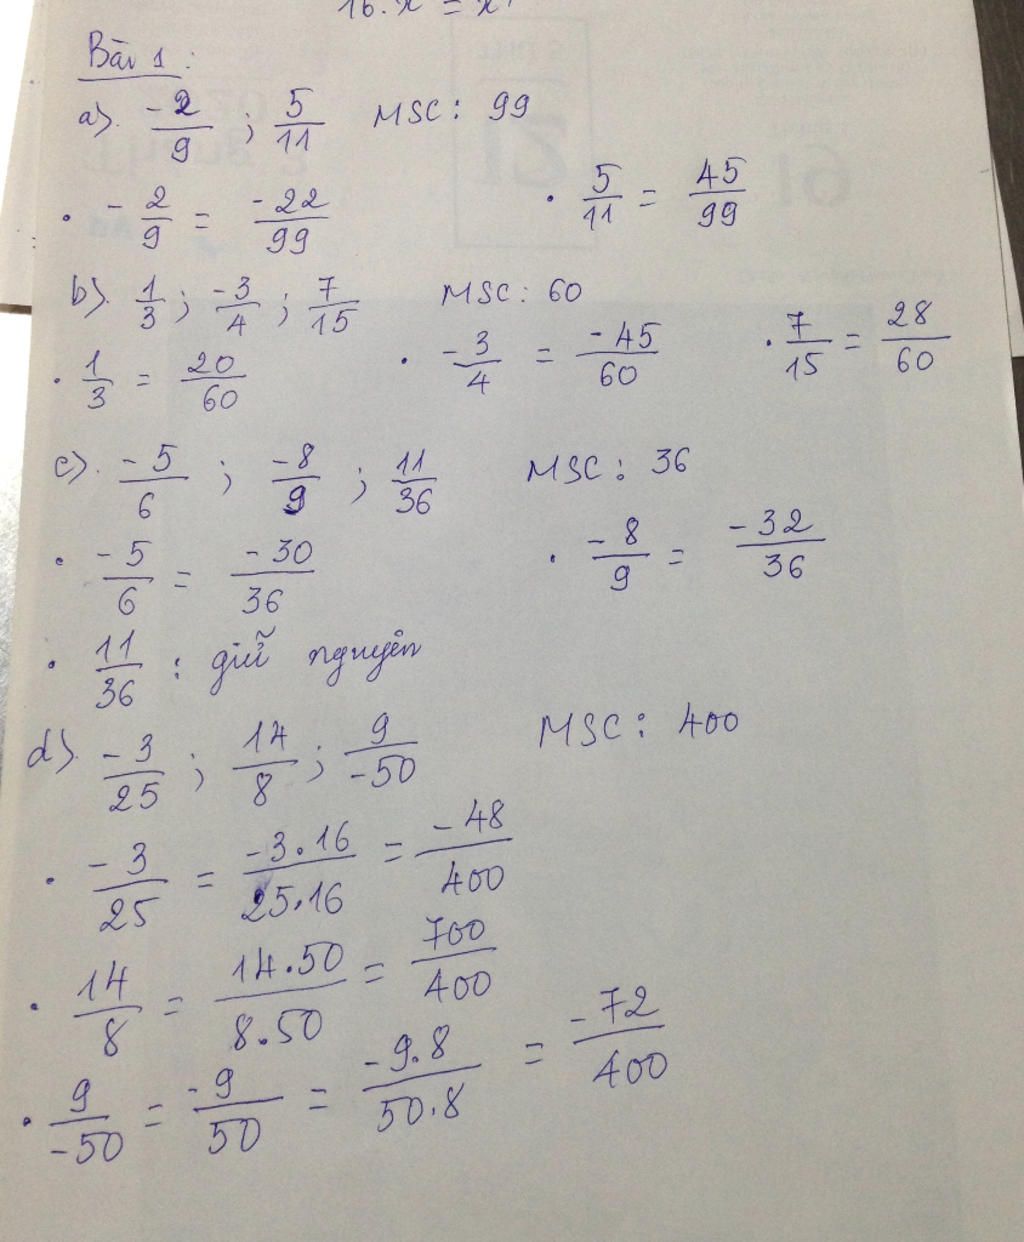 16. x = x
Bài 1 :
a) -2/9 ; 5/11 MSC: 99
• -2/9 = -22/99 • 5/11 = 45/99
b) 1/3 ; -3/4 ; 7/15 MSC: 60
• 1/3 = 20/60 • -3/4 = -45/60 • 7/15 = 28/60
c) -5/6 ; -8/9 ; 11/36 MSC: 36
• -5/6 = -30/36 • -8/9 = -32/36
• 11/36 : giữ nguyên
d) -3/25 ; 14/8 ; 9/-50 MSC: 400
• -3/25 = -3.16/25.16 = -48/400
• 14/8 = 14.50/8.50 = 700/400
• 9/-50 = -9/50 = -9.8/50.8 = -72/400